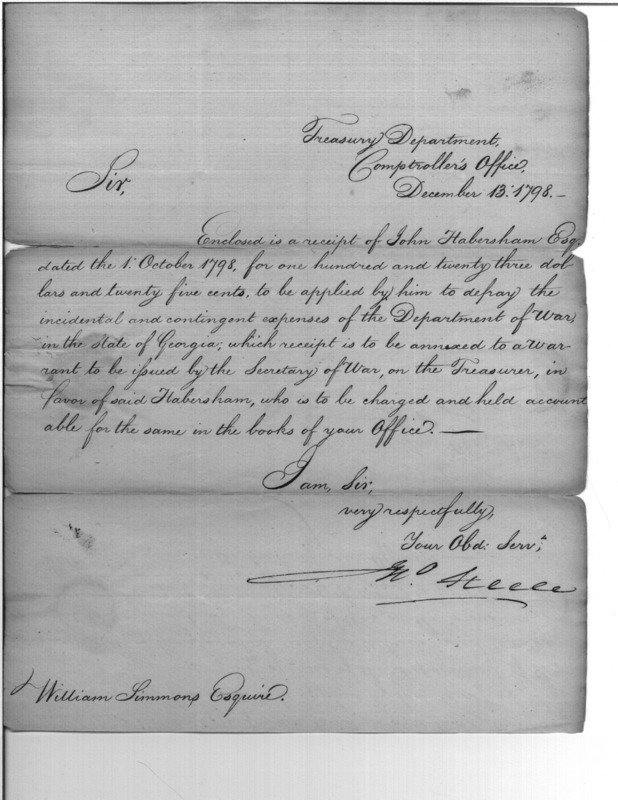 Treasury Department,
Comptroller's Office,
December 13: 1798.—
Sir,
Enclosed is a receipt of John Habersham Esq.
dated the 1: October 1798, for one hundred and twenty three dol-
lars and twenty five cents, to be applied by him to defray the
incidental and contingent expenses of the Department of War,
in the state of Georgia; which receipt is to be annexed to a war-
rant to be issued by the Secretary of War, on the Treasurer, in
favor of said Habersham, who is to be charged and held account
able for the same in the books of your Office. —
I am, Sir,
very respectfully,
Your Obd: Serv,t
Jno. Steele
William Simmons Esquire.